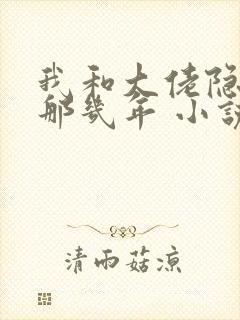 我和大佬隐
那几年 小说
清雨菇凉